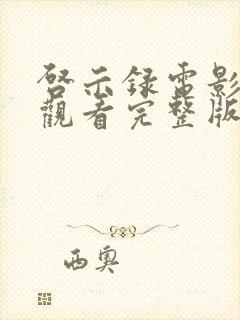 啓示録電影
觀看完整版
西奧